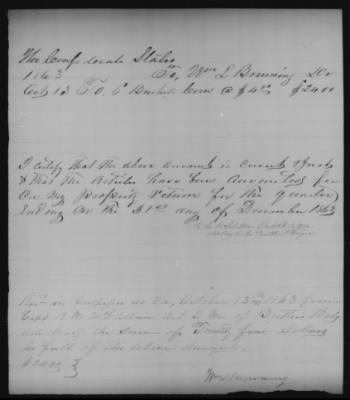 The Confederate States
1863 To, Wm L Browning Dr
Oct 13 To, 6 Bushels Corn @ $4.00 $24.00
I certify that the above account is correct & just
& that the Articles have been accounted for
on my property return for the quarter
Ending on the 31st day of December 1863
Capt & AQM
Recd at Camp October 13th 1863 from
Capt R M McClellan Act Q M of Butlers Regt
the sum of Twenty four Dollars
in full of the above account
$24.00
Wm L Browning